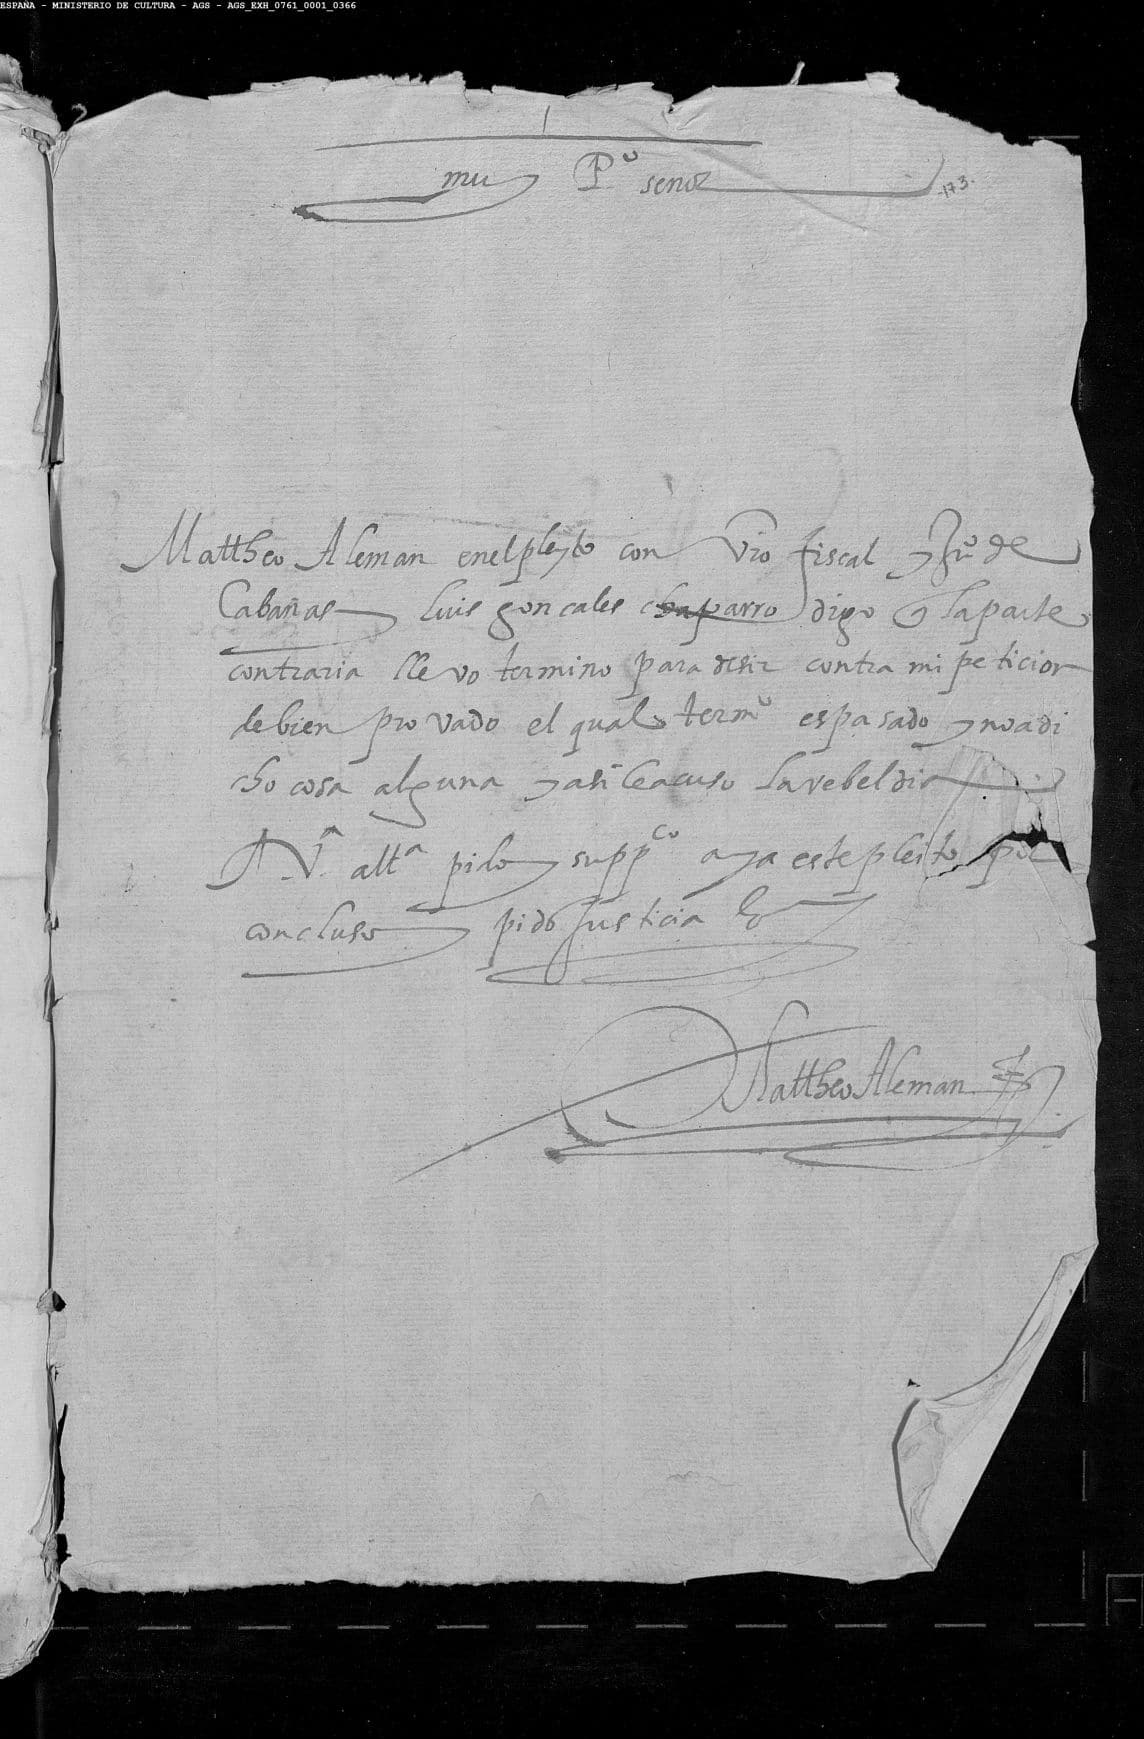 ESPAÑA - MINISTERIO DE CULTURA - AGS - AGS_EXH_0761_0001_0366
muy Pº señor
173.
Mattheo Aleman enel pleyto con Vro fiscal y Juº de
Cabañas y luis goncales chaparro digo q laparte
contraria llevo termino para desir contra mi peticion
de bien provado el qual termº es pasado y noa di
cho cosa alguna y asi le acuso la rebeldia
A V. altª pido y suppco aya este pleito por
concluso y pido Justicia
Mattheo Aleman